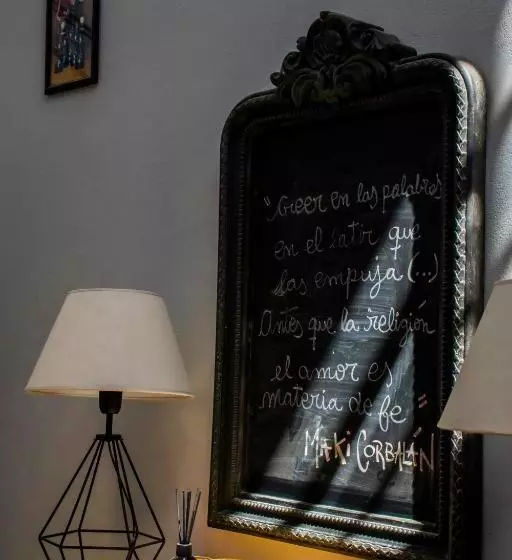 "Creer en las palabras
en el latir que
las empuja (...)
Antes que la religión
el amor es
materia de fe"
MAKI CORBALÁN